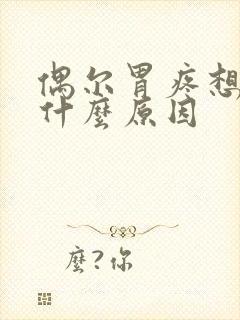 偶尔胃疼想
什麼原因
麼?你